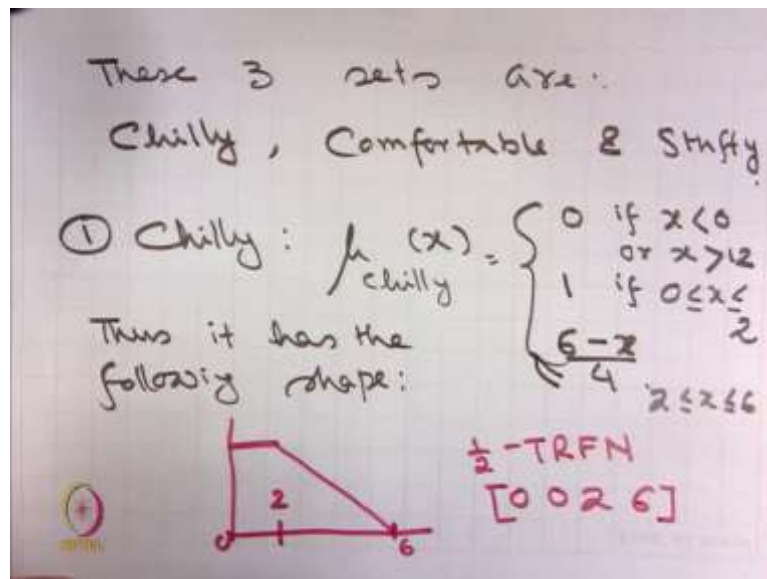 These 3 sets are:
Chilly, Comfortable & Stuffy.
① Chilly: μ chilly (x) = { 0 if x<0
or x>12
1 if 0≤x≤
2
Thus it has the
6-x
4 2≤x≤6
following shape:
½-TRFN
[0 0 2 6]
2
0 6